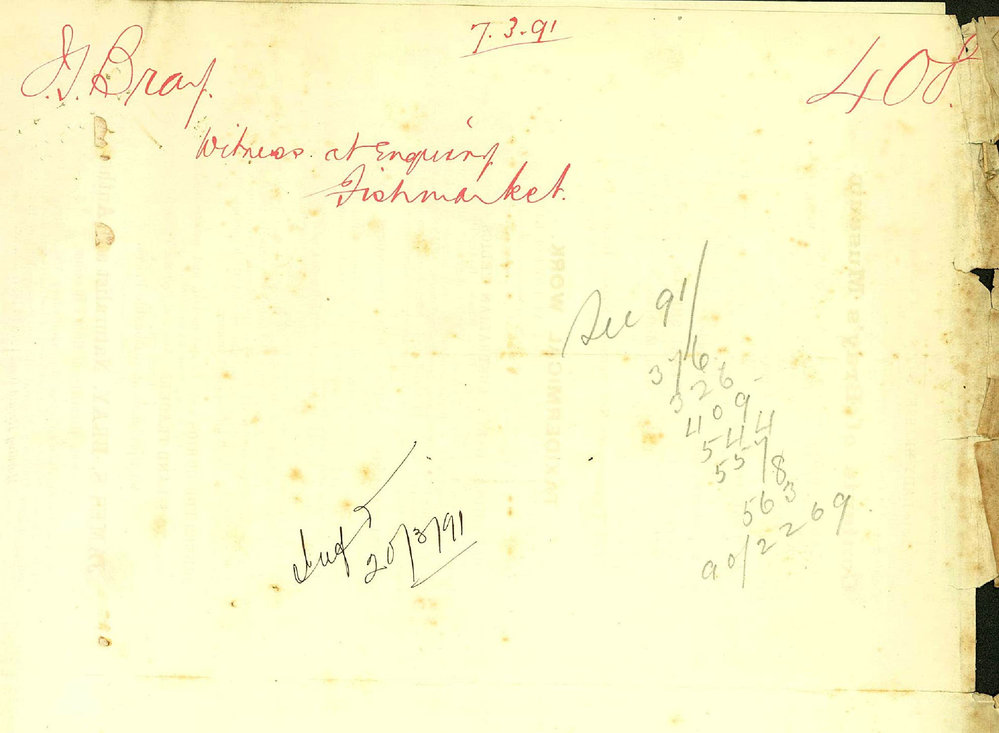 7.3.91
J. J. Bray.
408.
Witness at Enquiry
Fishmarket.
See 91/
376
326
409
544
557/8
563
90/2269
20/3/91